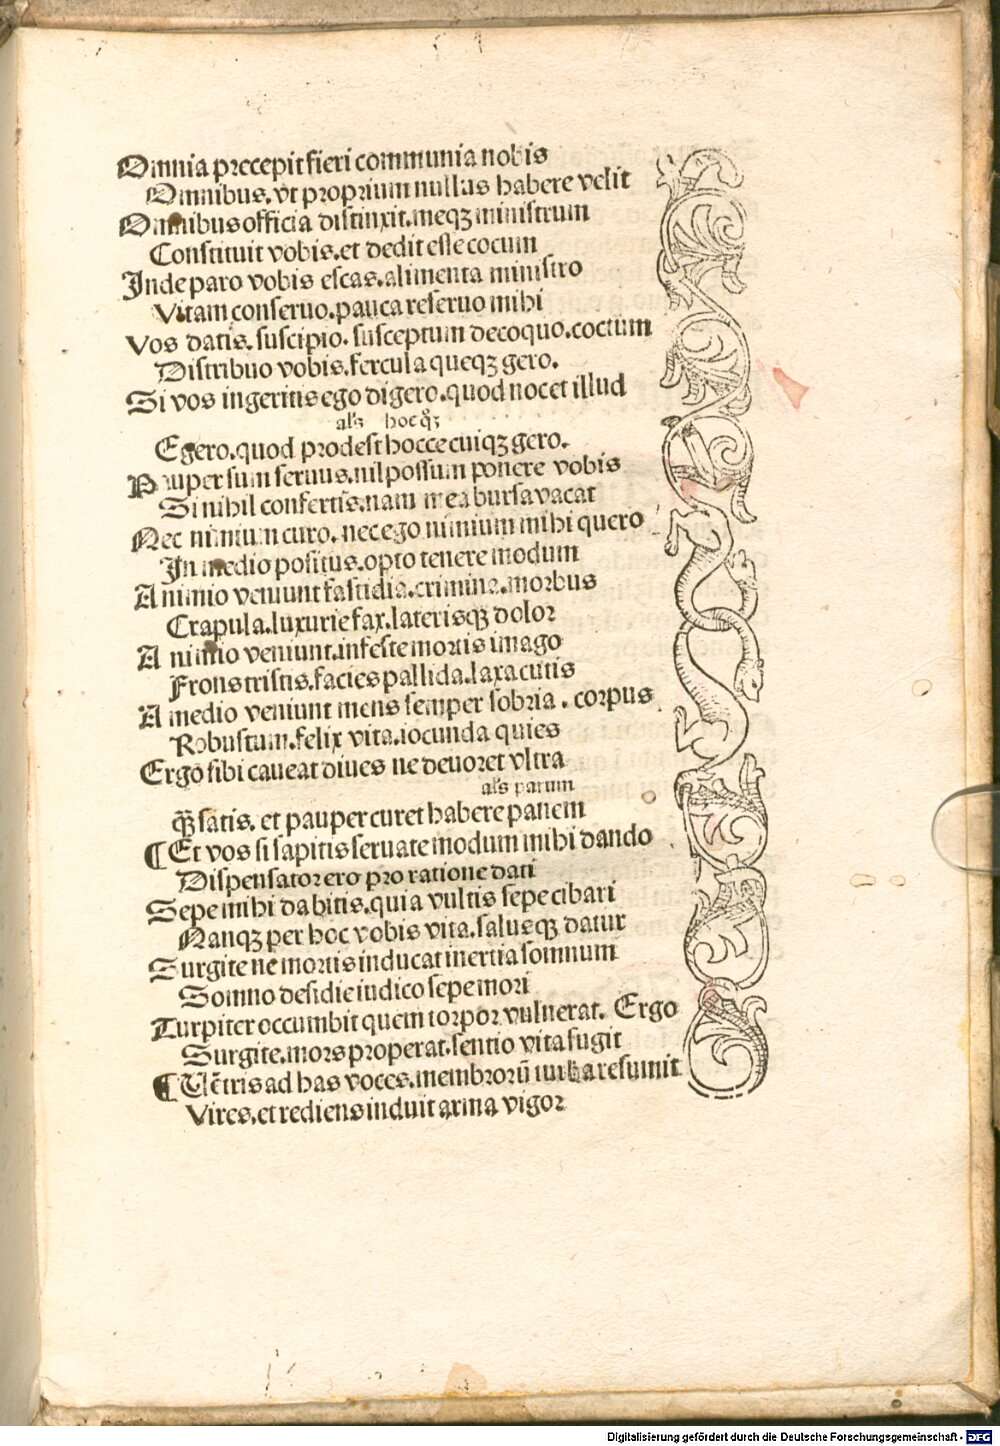 Omnia precepit fieri communia nobis
Omnibus. vt proprium nullus habere velit
Omnibus officia distinxit. meqꝫ ministrum
Constituit vobis. et dedit esse cocum
Inde paro vobis escas. alimenta ministro
Vitam conseruo. pauca reseruo mihi
Vos datis. suscipio. susceptum decoquo. coctum
Distribuo vobis. fercula queqꝫ gero.
Si vos ingeritis ego digero. quod nocet illud
als hoc qͦꝫ
Egero. quod prodest hoc cecuiqꝫ gero.
Pauper sum seruus. nil possum ponere vobis
Si nihil confertis. nam mea bursa vacat
Nec nimium curo. nec ego nimium mihi quero
In medio positus. opto tenere modum
A nimio veniunt fastidia. crimina. morbus
Crapula. luxurie fax. laterisqꝫ dolor
A nimio veniunt. infeste mortis imago
Frons tristis. facies pallida. laxa cutis
A medio veniunt mens semper sobria. corpus
Robustum. felix vita. iocunda quies
Ergo sibi caueat diues ne deuoret vltra
als parum
qꝫ̄ satis. et pauper curet habere panem
¶ Et vos si sapitis seruate modum mihi dando
Dispensator ero pro ratione dati
Sepe mihi dabitis. quia vultis sepe cibari
Nanqꝫ per hoc vobis vita. salusqꝫ datur
Surgite ne mortis inducat inertia somnum
Somno desidie iudico sepe mori
Turpiter occumbit quem torpor vulnerat. Ergo
Surgite. mors properat. sentio vita fugit
¶ Uētris ad has voces. membrorū turba resumit
Vires. et rediens induit arma vigor
Digitalisierung gefördert durch die Deutsche Forschungsgemeinschaft - DFG